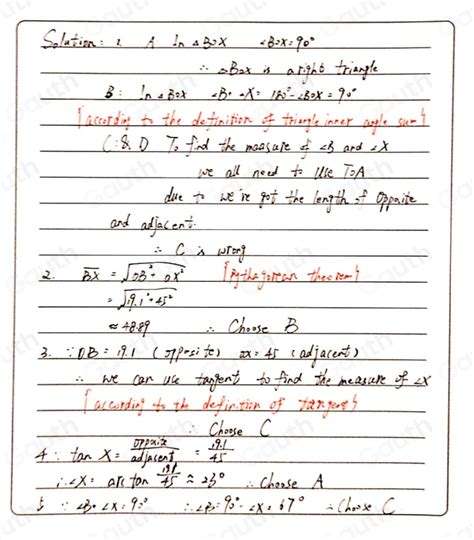 Solution: 1. A In △BOX ∠BOX=90°
∴ △Box is a right triangle
B: In △BOX ∠B+∠X= 180°-∠BOX=90°
[according to the definition of triangle inner angle sum]
C: & D To find the measure of ∠B and ∠X
we all need to use TOA
due to we're got the length of opposite
and adjacent.
∴ C is wrong
2. BX = √OB²+OX² [Pythagorean theorem]
= √19.1²+45²
≈ 48.89 ∴ Choose B
3. ∵ OB=19.1 (opposite) ox=45 (adjacent)
∴ we can use tangent to find the measure of ∠X
[according to the definition of tangent]
∴ Choose C
4. tan X = opposite/adjacent = 19.1/45
∴∠X= arc tan 19.1/45 ≈ 23° ∴ Choose A
5 ∵ ∠B+∠X=90° ∴ ∠B=90°-∠X=67° ∴ Choose C